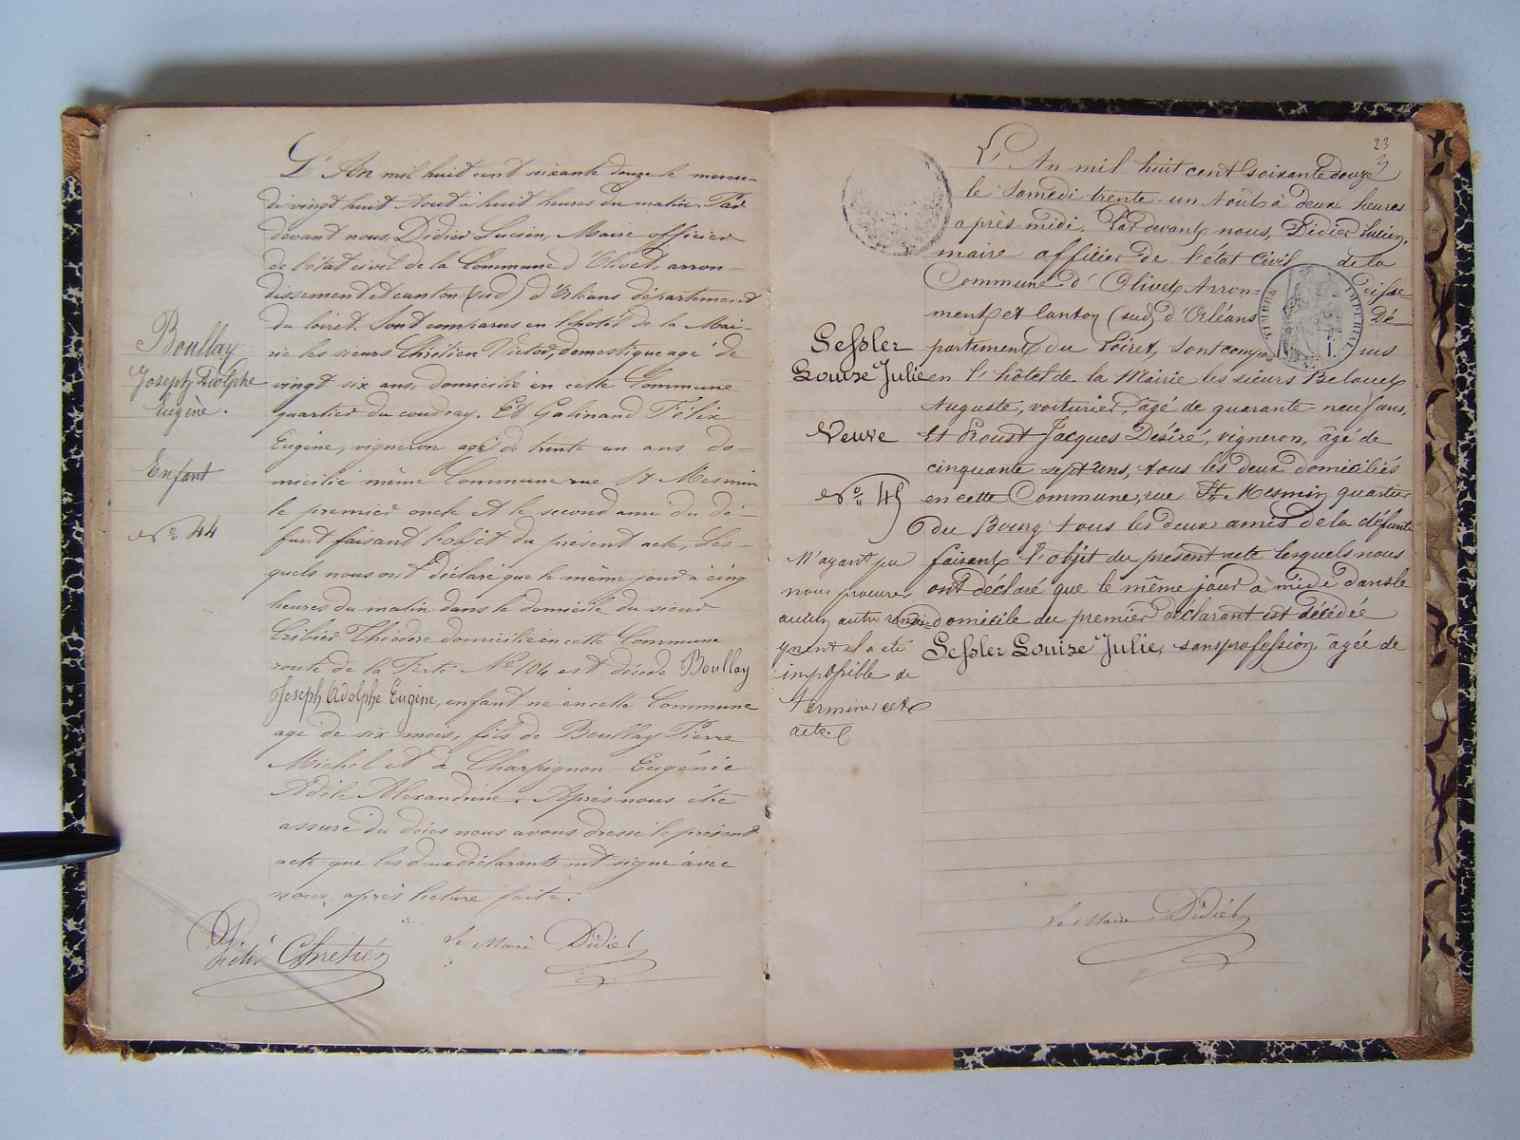 L'An mil huit cent soixante douze le mercre-
di vingt huit Aout à huit heures du matin. Par
devant nous, Didier Lucien, Maire officier
de l'état civil de la Commune d'Olivet, arron-
dissement et canton (sud) d'Orléans département
du loiret. Sont comparus en l'hotel de la Mai-
rie les sieurs Chrétien Victor, domestique agé de
vingt six ans, domicilié en cette Commune
quartier du coudray. Et Galinand Félix
Eugène, vigneron agé de trente un ans do-
micilié même Commune rue St Mesmin
le premier oncle et le second ami du dé-
funt faisant l'objet du présent acte, Les-
quels nous ont déclaré que le même jour à cinq
heures du matin dans le domicile du sieur
Théodore domicilié en cette Commune
route de la Ferté No 104 est décédé Boullay
Joseph Adolphe Eugène, enfant né en cette Commune
agé de six mois, fils de Boullay Pierre
Michel et de Charpignon Eugénie
Adèle Alexandrine. Après nous être
assuré du décès nous avons dressé le présent
acte que les deux déclarants ont signé avec
nous, après lecture faite.
Boullay
Joseph Adolphe
Eugène.
Enfant
No 44
Victor Chrétien
le Maire Didier
23
L'An mil huit cent soixante douze
le Samedi trente-un Août à deux heures
après midi. Pardevant nous, Didier Lucien,
maire officier de l'état Civil de la
Commune d'Olivet Arron= disse-
ment et Canton (sud) d'Orléans Dé-
partement du Loiret, sont compa rus
en l'hôtel de la Mairie les sieurs Belouet
Auguste, voiturier, âgé de quarante-neuf ans.
Et Proust Jacques Désiré, vigneron, âgé de
cinquante-sept ans, tous les deux domiciliés
en cette Commune, rue St. Mesmin, quartier
du Bourg tous les deux amis de la défunte
faisant l'objet du présent acte lesquels nous
ont déclaré que le même jour à midi dans le
domicile du premier déclarant est décédée
Sessler Louise Julie, sans profession, âgée de
Sessler
Louise Julie
Veuve
No 45
N'ayant pu
nous procurer
aucun autre rensei-
gnement il a été
impossible de
terminer cet
acte.
TIMBRE IMPERIAL
Le Maire Didier